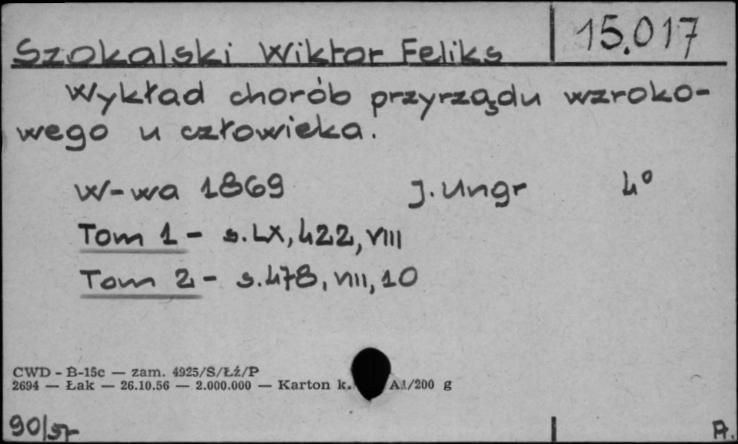 Szokalski Wiktor Feliks 15.017
Wykład chorób przyrządu wzroko-
wego u człowieka.
W-wa 1869 J. Ungr 4°
Tom 1 - s. LX, 422, VIII
Tom 2 - s. 478, VIII, 10
CWD - B-15c — zam. 4925/S/Łź/P
2694 — Łak — 26.10.56 — 2.000.000 — Karton k. A1/200 g
90/57 A.